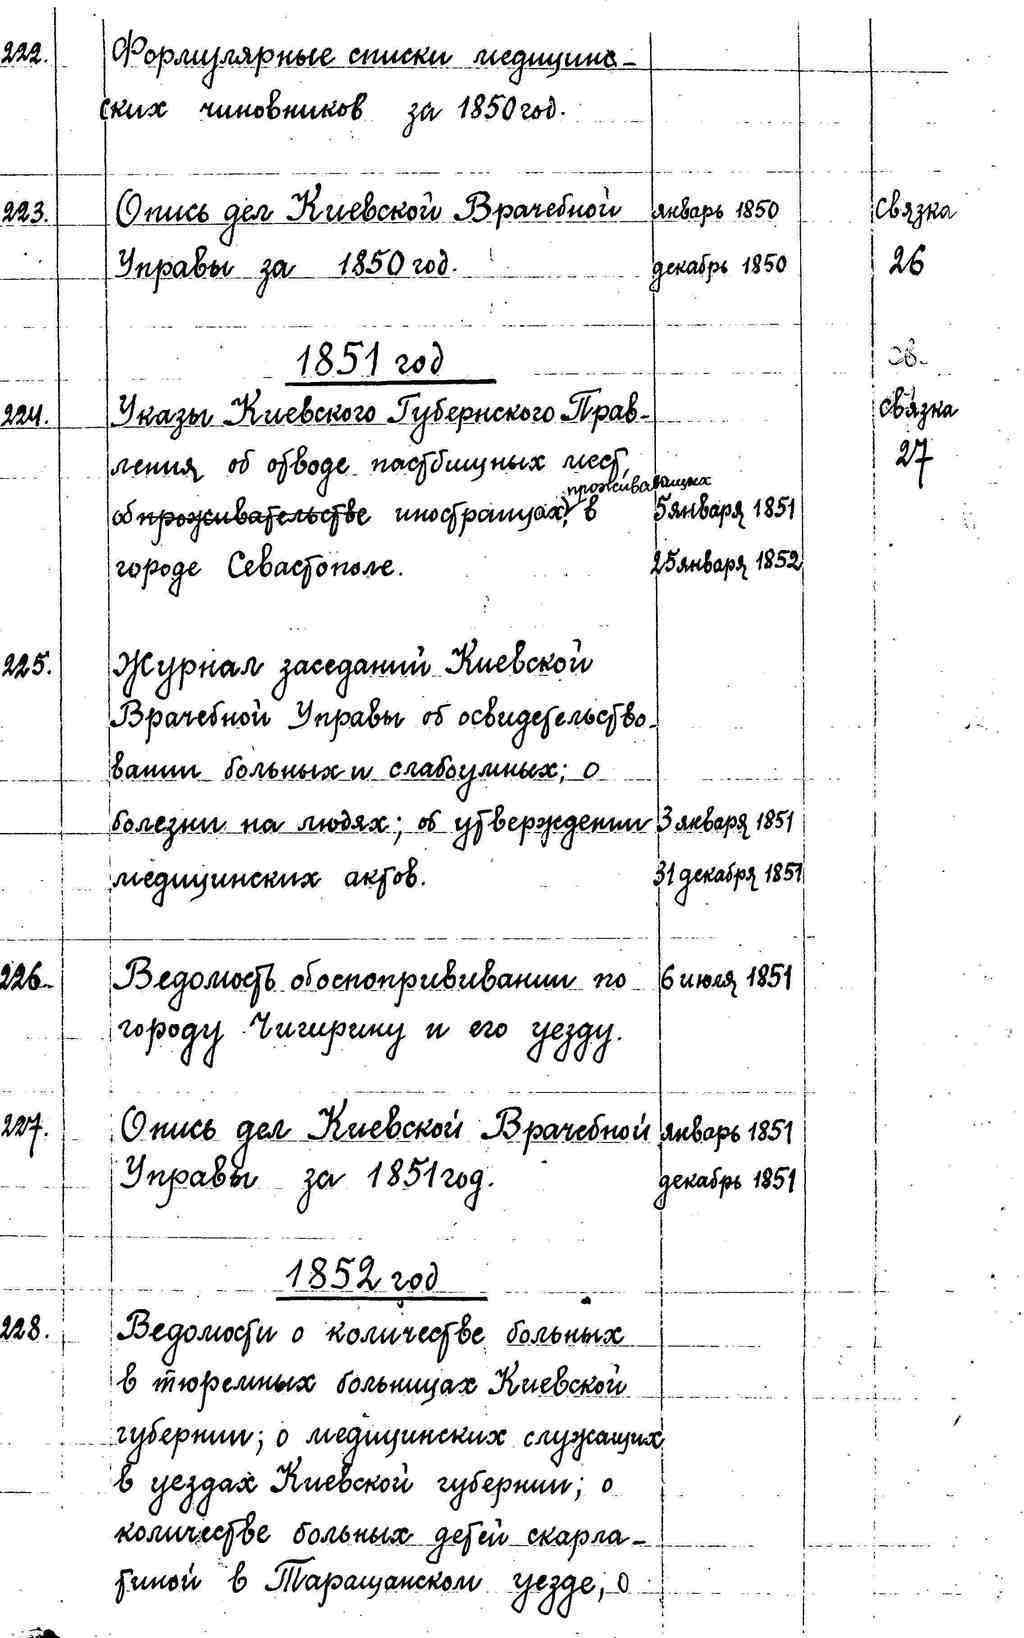 222. Формулярные списки медицинс-
ских чиновников за 1850 год.
223. Опись дел Киевской Врачебной январь 1850 Связка
Управы за 1850 год. декабрь 1850 26
1851 год
св.
224. Указы Киевского Губернского Прав- Связка
ления об отводе пастбищных мест, 27
проживающих
об проживательстве иностранцах, в 5 января 1851
городе Севастополе. 25 января 1852
225. Журнал заседаний Киевской
Врачебной Управы об освидетельство-
вании больных и слабоумных; о
болезни на людях; об утверждении 3 января 1851
медицинских актов. 31 декабря 1851
226. Ведомость обоспопрививании по 6 июля 1851
городу Чигирину и его уезду.
227. Опись дел Киевской Врачебной январь 1851
Управы за 1851 год. декабрь 1851
1852 год
228. Ведомости о количестве больных
в тюремных больницах Киевской
губернии; о медицинских служащих
в уездах Киевской губернии; о
количестве больных детей скарла-
тиной в Таращанском уезде; о